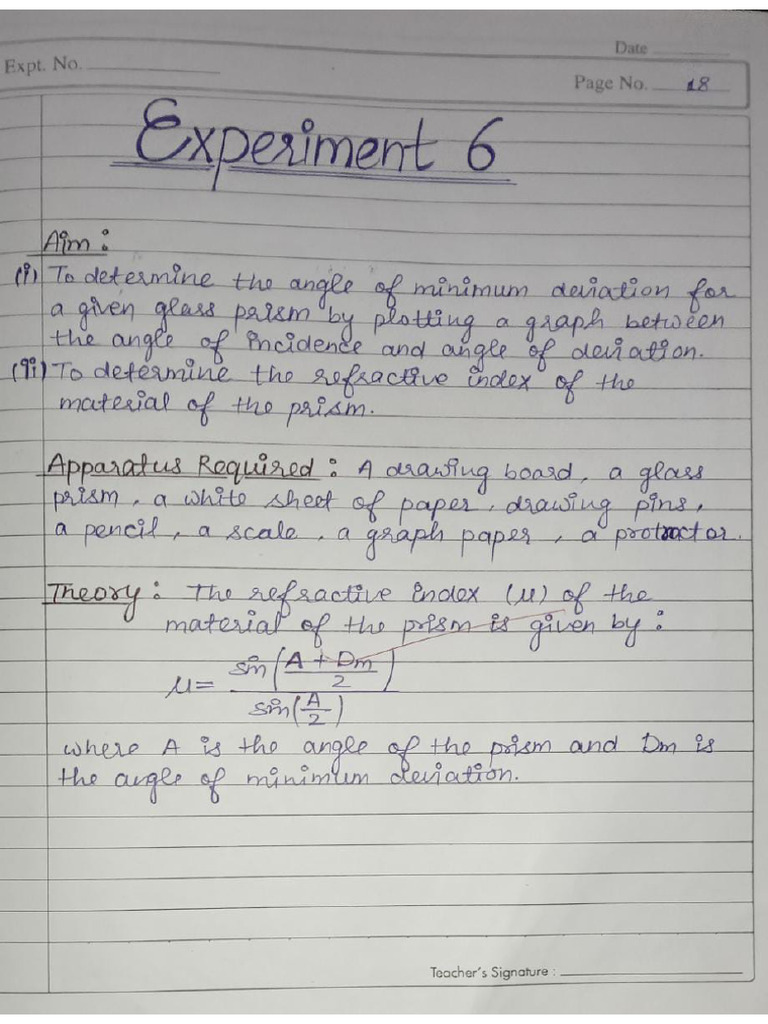 Date
Expt. No.
Page No. 18
Experiment 6
Aim :
(i) To determine the angle of minimum deviation for
a given glass prism by plotting a graph between
the angle of incidence and angle of deviation.
(ii) To determine the refractive index of the
material of the prism.
Apparatus Required : A drawing board, a glass
prism, a white sheet of paper, drawing pins,
a pencil, a scale, a graph paper, a protractor.
Theory : The refractive index (μ) of the
material of the prism is given by :
μ = sin((A + Dm)/2) / sin(A/2)
where A is the angle of the prism and Dm is
the angle of minimum deviation.
Teacher's Signature :